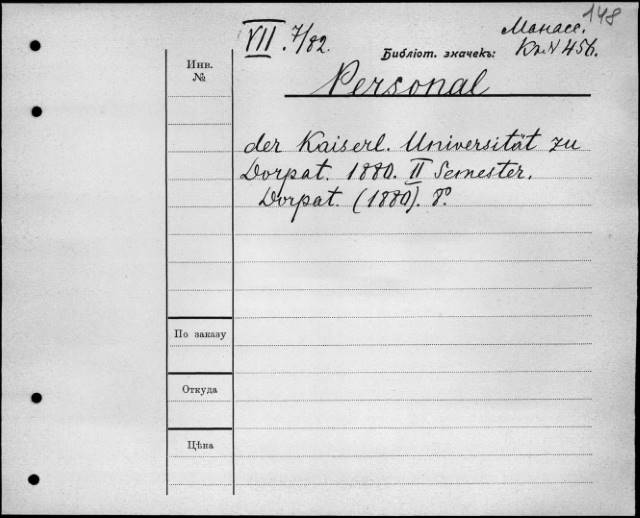 148
VII. 7/82.
Манасс.
Библіот. значекъ: Кл. N 456.
Инв.
№
Personal
der Kaiserl. Universität zu
Dorpat. 1880. II Semester.
Dorpat. (1880). 8º
По заказу
Откуда
Цѣна